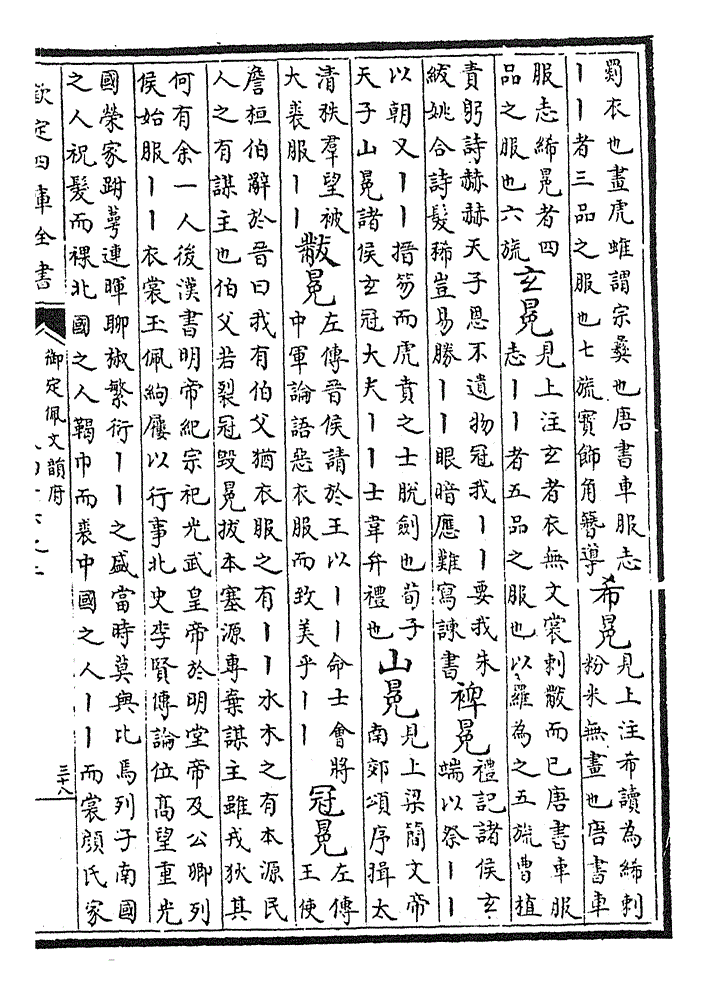 罽衣也畫虎蜼謂宗彝也唐書車服志
丨丨者三品之服也七旒寳飾角簪導
希冕
見上注希讀為絺刺
粉米無畫也唐書車
服志絺冕者四
品之服也六旒
玄冕
見上注玄者衣無文裳刺黻而已唐書車服
志丨丨者五品之服也以羅為之五旒曹植
責躬詩赫赫天子恩不遺物冠我丨丨要我朱
紱姚合詩髮稀豈易勝丨丨眼暗應難寫諫書
裨冕
禮記諸侯玄
端以祭丨丨
以朝又丨丨搢笏而虎賁之士脫劍也荀子
天子山冕諸侯玄冠大夫丨丨士韋弁禮也
山冕
見上梁簡文帝
南郊頌序揖太
清秩羣望被
大裘服丨丨
黻冕
左傳晉侯請於王以丨丨命士會將
中軍論語惡衣服而致美乎丨丨
冠冕
左傳
王使
詹桓伯辭於晉曰我有伯父猶衣服之有丨丨水木之有本源民
人之有謀主也伯父若裂冠毁冕拔本塞源專棄謀主雖戎狄其
何有余一人後漢書明帝紀宗祀光武皇帝於明堂帝及公卿列
侯始服丨丨衣裳玉佩絇屨以行事北史李賢傳論位髙望重光
國榮家跗萼連暉聊椒繁衍丨丨之盛當時莫與比焉列子南國
之人祝髮而裸北國之人鞨巾而裘中國之人丨丨而裳顔氏家
欽定四庫全書
御定佩文韻府
三十八